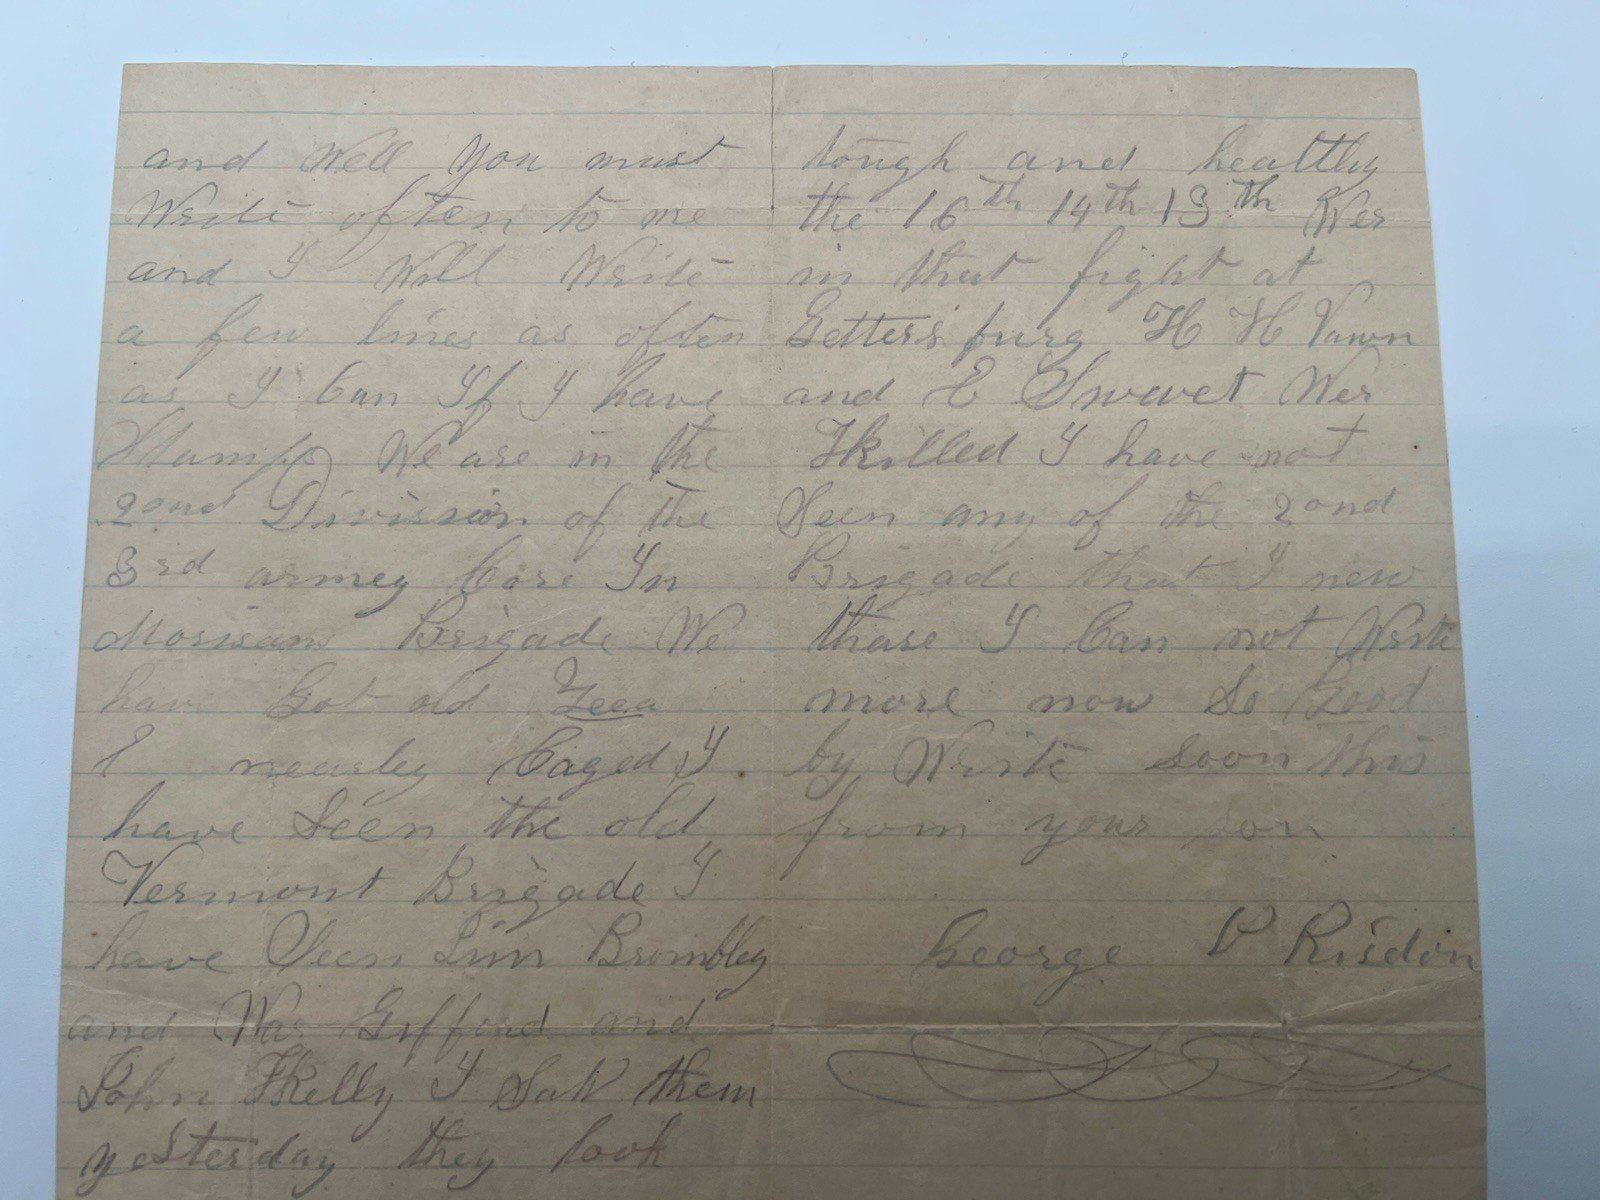 and Well you must
Write often to me
and I Will Write
a few lines as often
as I Can If I have
Stamps We are in the
2ond Division of the
3rd armey Core In
Morisans Brigade We
have Got old
nearley Caged I
have Seen the old
Vermont Brigade I
have Seen Lim Brombley
and Was Gifford and
John Kelly I SaW them
yesterday they look
tough and healthy
the 16th 14th 13th Wer
in that fight at
Gettersburg H H Vawn
and E Swewet Wer
Killed I have not
Seen any of the 2ond
Brigade that I new
thare I Can not Write
more now So Good
by Write Soon this
from your son
George P Risdon